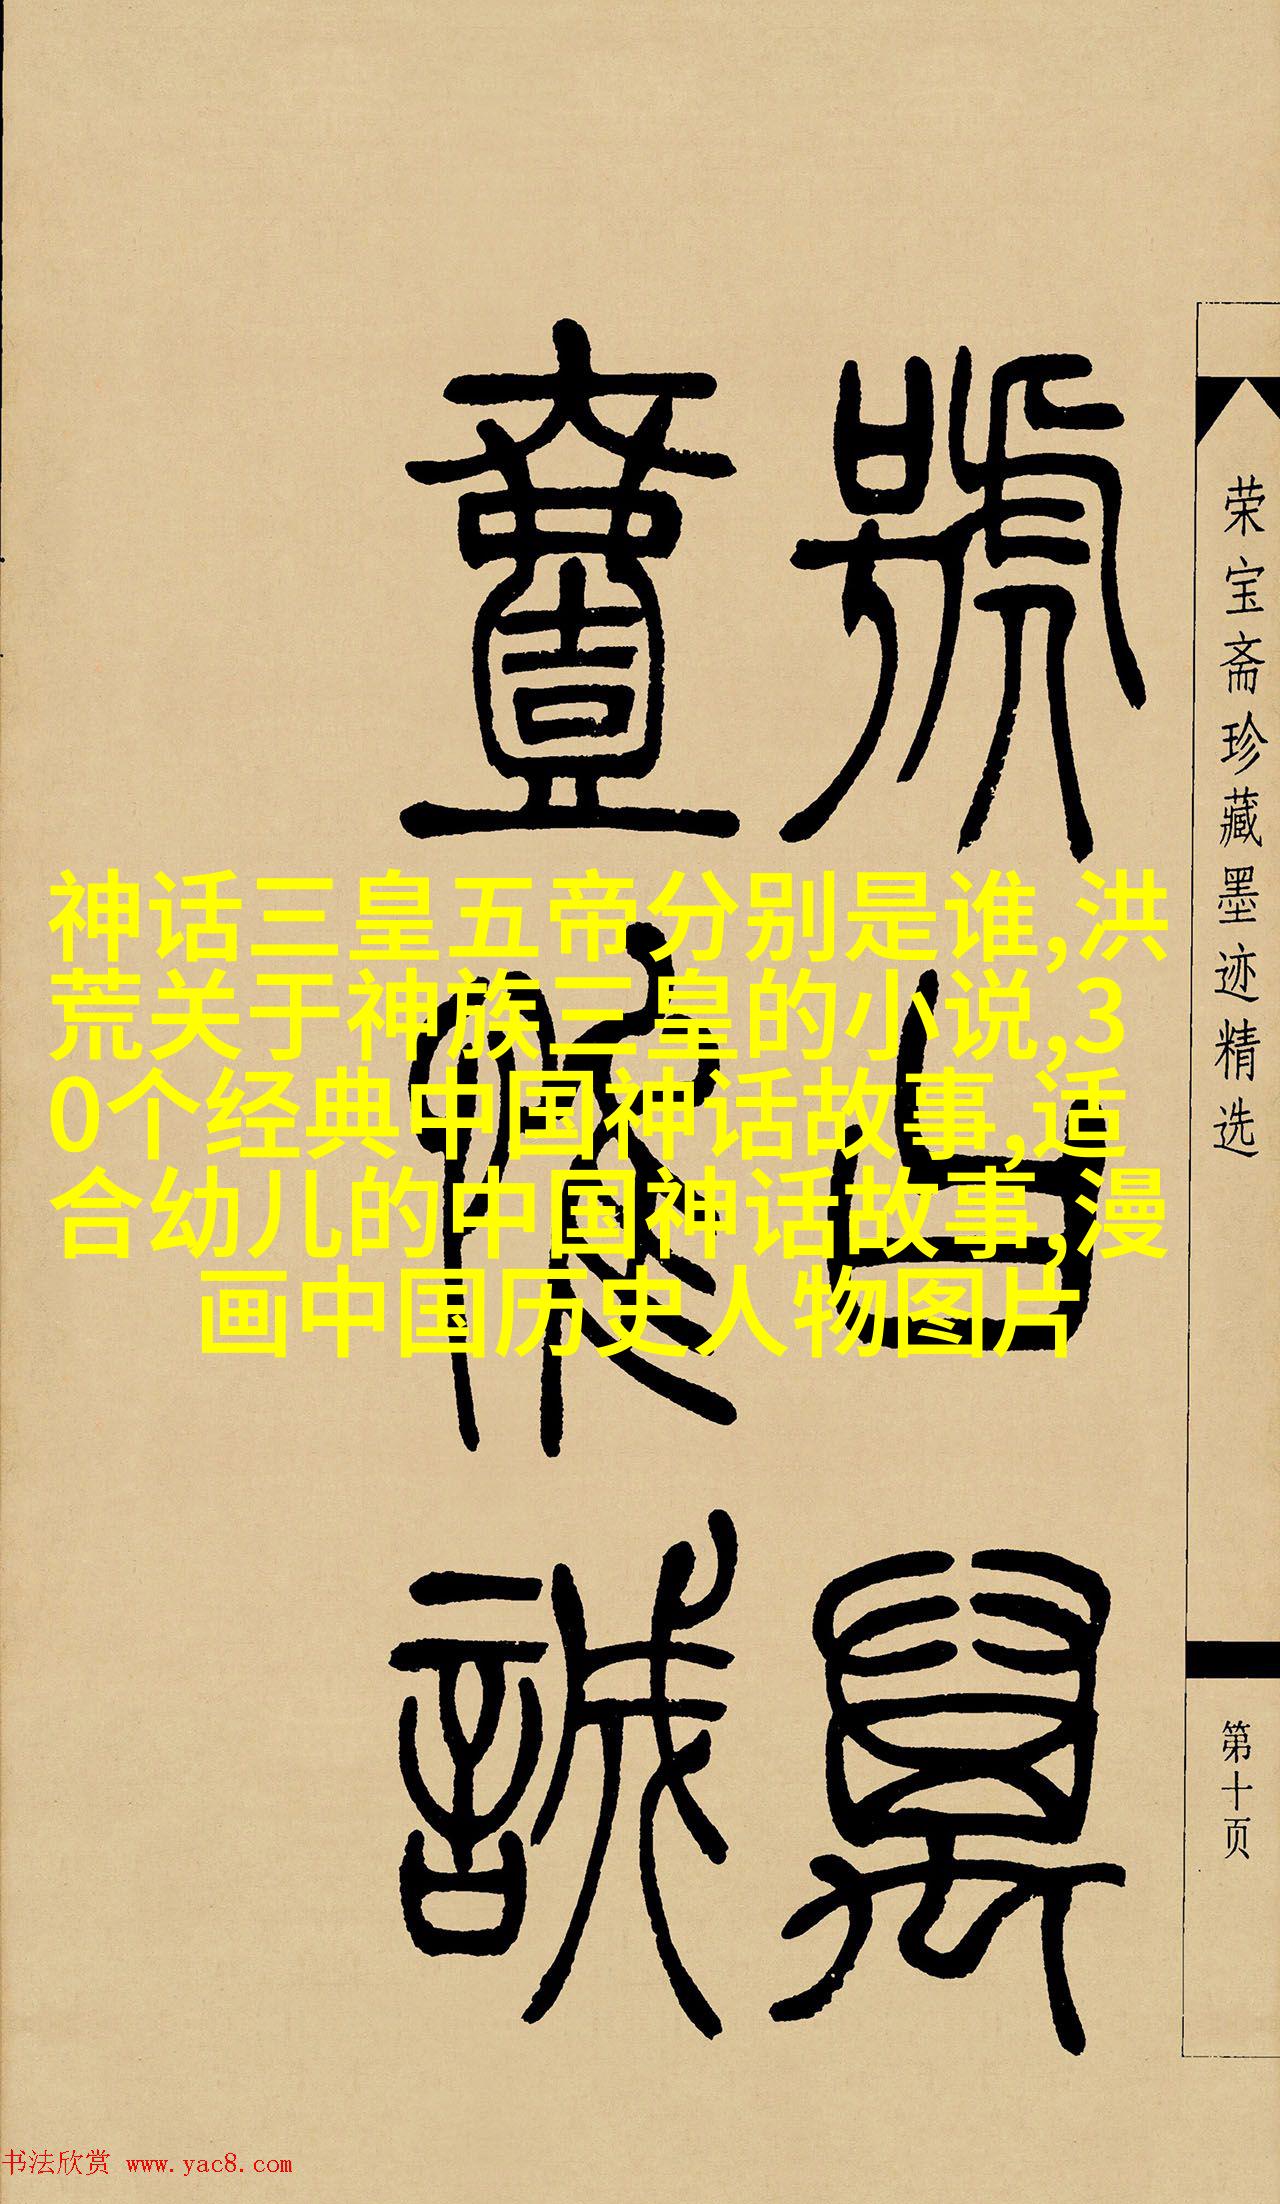 荣宝斋珍藏墨迹精选
第十页
號
誠
神话三皇五帝分别是谁,洪
荒关于神族三皇的小说,3
0个经典中国神话故事,适
合幼儿的中国神话故事,漫
画中国历史人物图片
书法欣赏 www.yac8.com